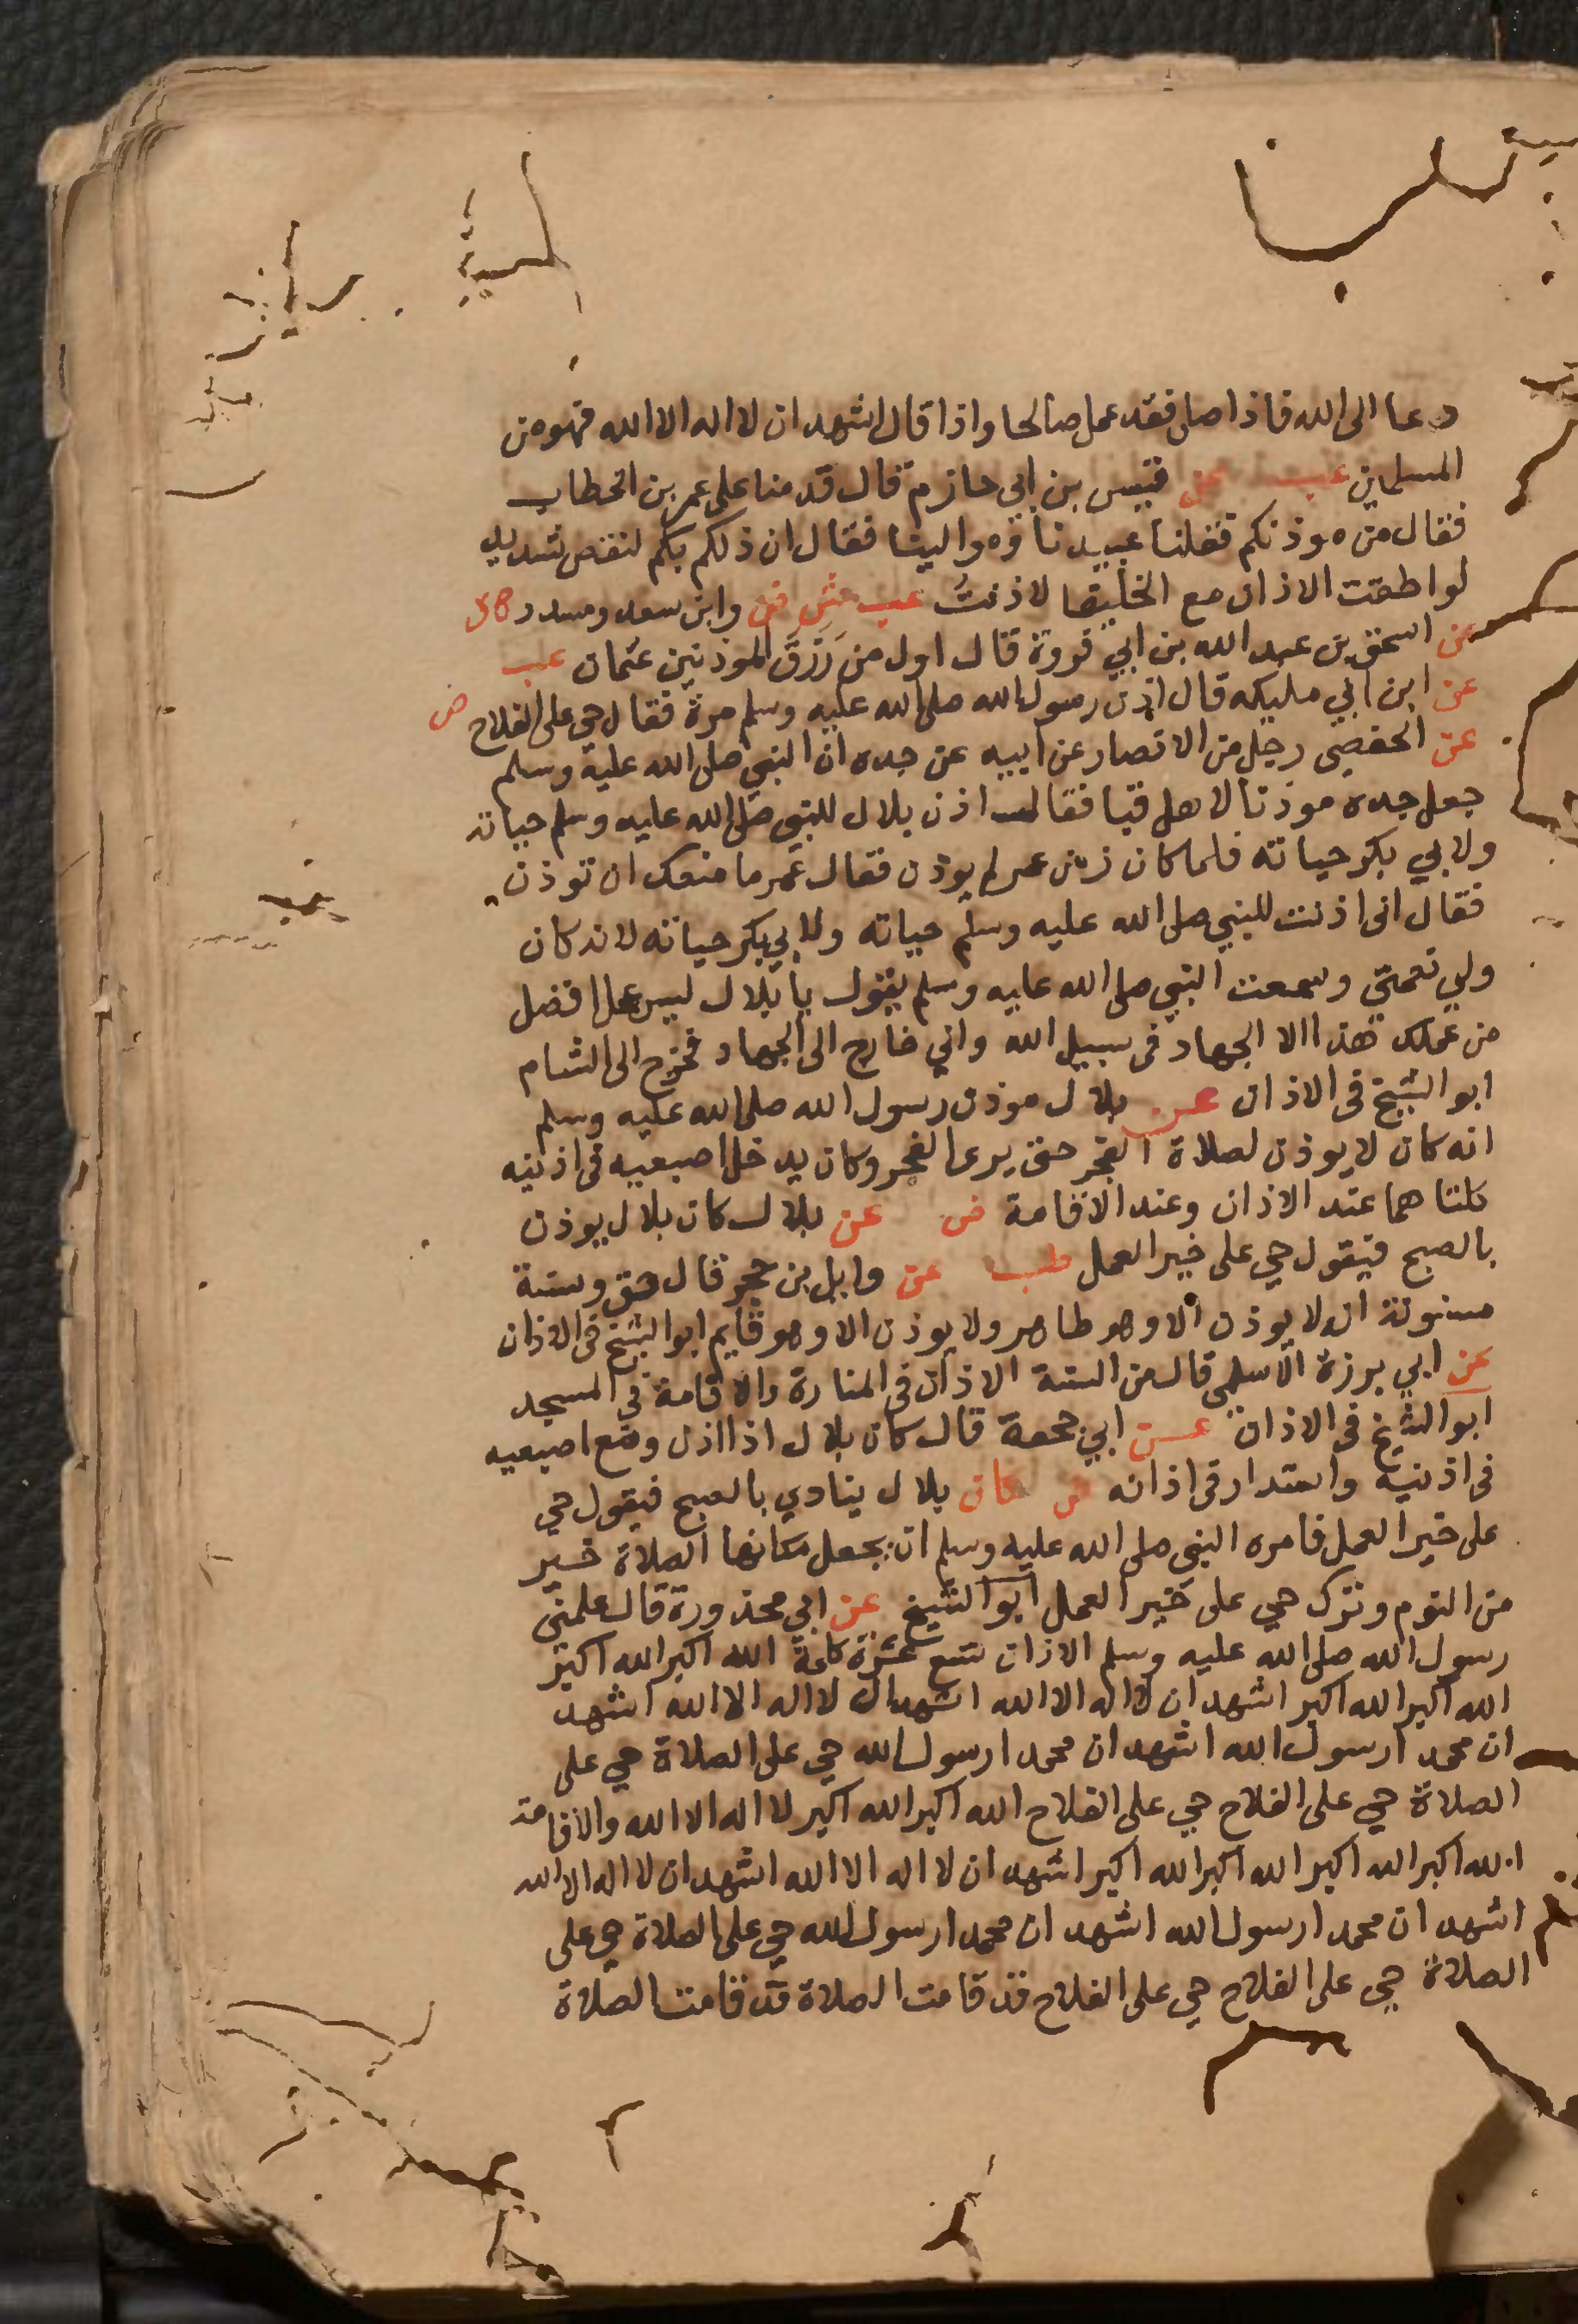 دعا الى الله فاذا صلى فقد عمل صالحا واذا قال اشهد ان لا اله الا الله فهو من
المسلمين عب عن قيس بن ابي حازم قال قدمنا على عمر بن الخطاب
فقال من موذنكم فقلنا عبيدنا وموالينا فقال ان ذلكم بكم لنقص شديد
لو اطقت الاذان مع الخليفا لاذنتُ عب ش ق وابن سعد ومسدد
عن اسحق بن عبد الله بن ابي فروة قال اول من رَزَقَ الموذنين عثمان عب
عن ابن ابي مليكه قال اذن رسول الله صلى الله عليه وسلم مرة فقال حي على الفلاح ض
عن الحفصي رجل من الانصار عن ابيه عن جده ان النبي صلى الله عليه وسلم
جعل جده موذنا لاهل قبا فقال اذن بلال للنبي صلى الله عليه وسلم حياته
ولابي بكر حياته فلما كان زمن عمر لم يوذن فقال عمر ما منعك ان توذن
فقال انى اذنت للنبي صلى الله عليه وسلم حياته ولابي بكر حياته لانه كان
ولي نعمتي وسمعت النبي صلى الله عليه وسلم يقول يا بلال ليس عمل افضل
من عملك هذا الا الجهاد فى سبيل الله واني خارج الى الجهاد فخرج الى الشام
ابو الشيخ فى الاذان عن بلال موذن رسول الله صلى الله عليه وسلم
انه كان لا يوذن لصلاة الفجر حتى يرى الفجر وكان يدخل اصبعيه فى اذنيه
كلتاهما عند الاذان وعند الاقامة ض عن بلال كان بلال يوذن
بالصبح فيقول حي على خير العمل طب عن وايل بن حجر قال حق وسنة
مسنونة ان لا يوذن الا وهو طاهر ولا يوذن الا وهو قايم ابو الشيخ فى الاذان
عن ابي برزة الاسلمي قال من السنة الاذان فى المنارة والاقامة في المسجد
ابو الشيخ فى الاذان عن ابي جحفة قال كان بلال اذا اذن وضع اصبعيه
فى اذنيه واستدار فى اذانه ض كان بلال ينادي بالصبح فيقول حي
على خير العمل فامره النبي صلى الله عليه وسلم ان يجعل مكانها الصلاة خير
من النوم وترك حي على خير العمل ابو الشيخ عن ابي محذورة قال علمنى
رسول الله صلى الله عليه وسلم الاذان تسع عشرة كلمة الله اكبر الله اكبر
الله اكبر الله اكبر اشهد ان لا اله الا الله اشهد ان لا اله الا الله اشهد
ان محمدا رسول الله اشهد ان محمدا رسول الله حي على الصلاة حي على
الصلاة حي على الفلاح حي على الفلاح الله اكبر الله اكبر لا اله الا الله والاقامة
الله اكبر الله اكبر الله اكبر الله اكبر اشهد ان لا اله الا الله اشهد ان لا اله الا الله
اشهد ان محمدا رسول الله اشهد ان محمدا رسول الله حي على الصلاة حي على
الصلاة حي على الفلاح حي على الفلاح قد قامت الصلاة قد قامت الصلاة